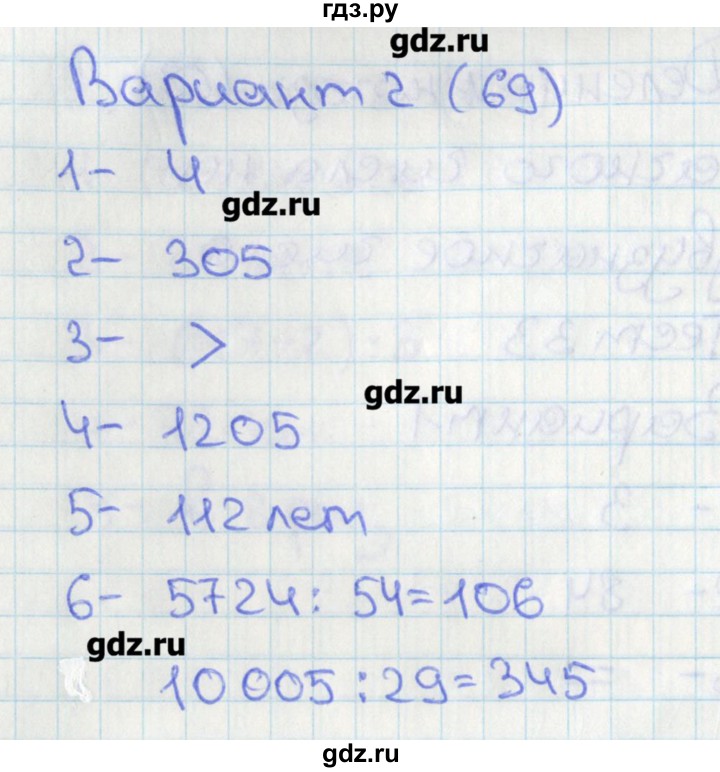 гдз.ру
gdz.ru
Вариант 2 (69)
1- 4
gdz.ru
2- 305
3- >
gdz.ru
4- 1205
5- 112 лет
6- 5724: 54=106
gdz.ru
10 005:29=345
gdz.ru